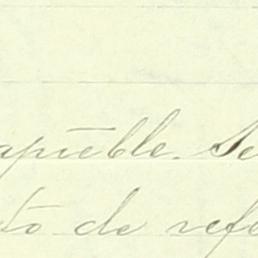 apreble. Se
to de refe